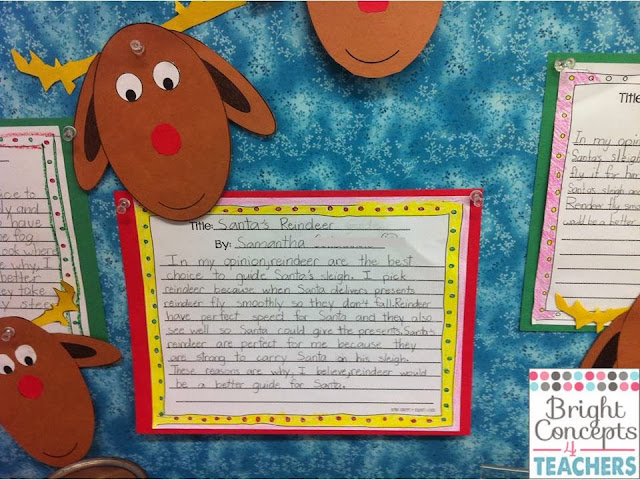 Title: Santa's Reindeer
By: Samantha
In my opinion, reindeer are the best
choice to guide Santa's sleigh. I pick
reindeer because when Santa delivers presents
reindeer fly smoothly so they don't fall. Reindeer
have perfect speed for Santa and they also
see well so Santa could give the presents. Santa's
reindeer are perfect for me because they
are strong to carry Santa on his sleigh.
These reasons are why I believe, reindeer would
be a better guide for Santa.
Title:
In my opinion
Santa's sleigh
fly it for
Santa's sleigh
Reindeer fly
be a better
oice to
ly and
have
fog
look where
why I
take
Bright
Concepts
4
TEACHERS